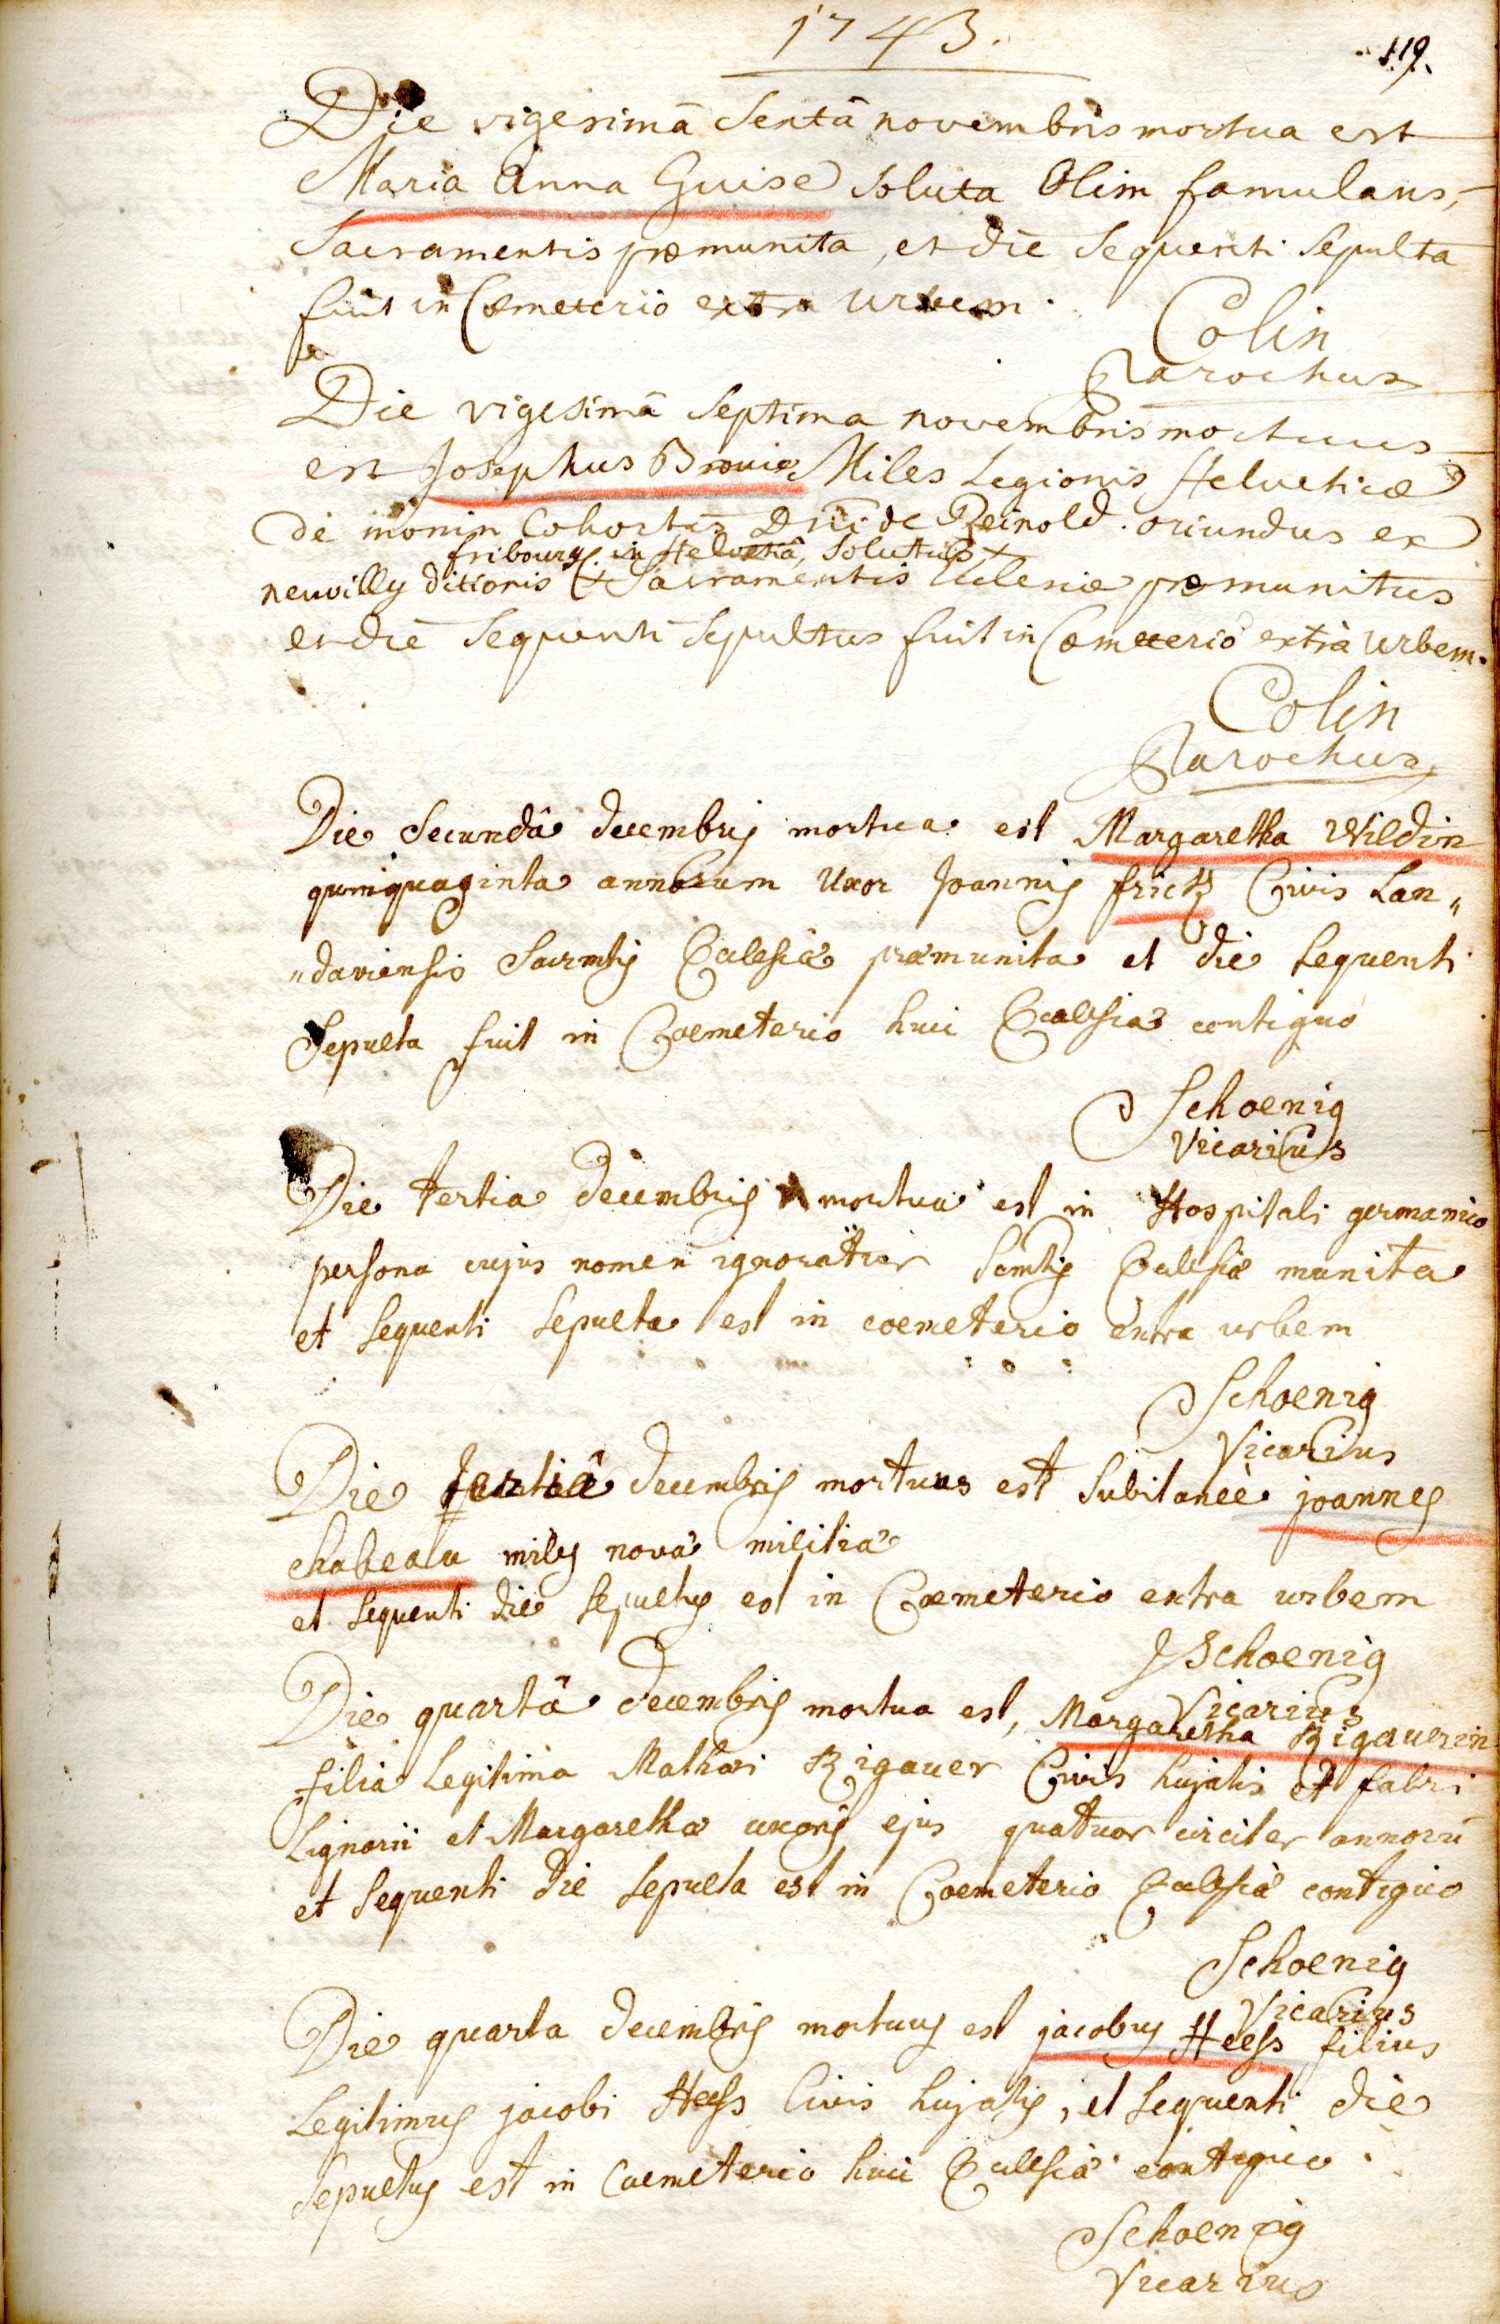 1743.
119.
Die vigesimâ Sextâ novembris mortua est
Maria Anna Guise soluta Olim famulans,
Sacramentis præmunita, et die sequenti sepulta
fuit in Cœmeterio extra urbem.
Colin
Parochus
Die vigesimâ septima novembris mortuus
est Josephus Miles Legionis Helveticæ
de monin Cohortis Dni de Reinold. oriundus ex
fribourg in Helvetiâ, solutus
neuvilly ditionis Sacramentis Ecclesiæ præmunitus
et die sequenti sepultus fuit in Cœmeterio extrà urbem.
Colin
Parochus
Die Secundâ decembris mortua est Margaretha Wildin
quinquaginta annorum Uxor Joannis frick Civis Lan„
„daviensis Sacrmtis Ecclesiæ præmunita et die sequenti
Sepulta fuit in Coemeterio huic Ecclesiæ contiguo
Schoenig
Vicarius
Die tertia decembris mortua est in Hospitali germanico
persona cujus nomen ignoratur Scmtis Ecclesiæ munita
et sequenti sepulta est in coemeterio extra urbem
Schoenig
Vicarius
Die tertiâ decembris mortuus est subitaneè joannes
chabeau miles novæ militiæ
et sequenti die sepultus est in Coemeterio extra urbem
Schoenig
Vicarius
Die quartâ decembris mortua est, Margaretha Rigauerin
filia Legitima Mathæi Rigauer Civis hujatis et fabri
Lignarii et Margarethæ uxoris ejus quatuor circiter annorū
et sequenti die sepulta est in Coemeterio Ecclesiæ contiguo
Schoenig
Vicarius
Die quarta decembris mortuus est jacobus Heess filius
Legitimus jacobi Heess Civis hujatis, et sequenti die
sepultus est in Coemeterio huic Ecclesiæ contiguo.
Schoenig
Vicarius